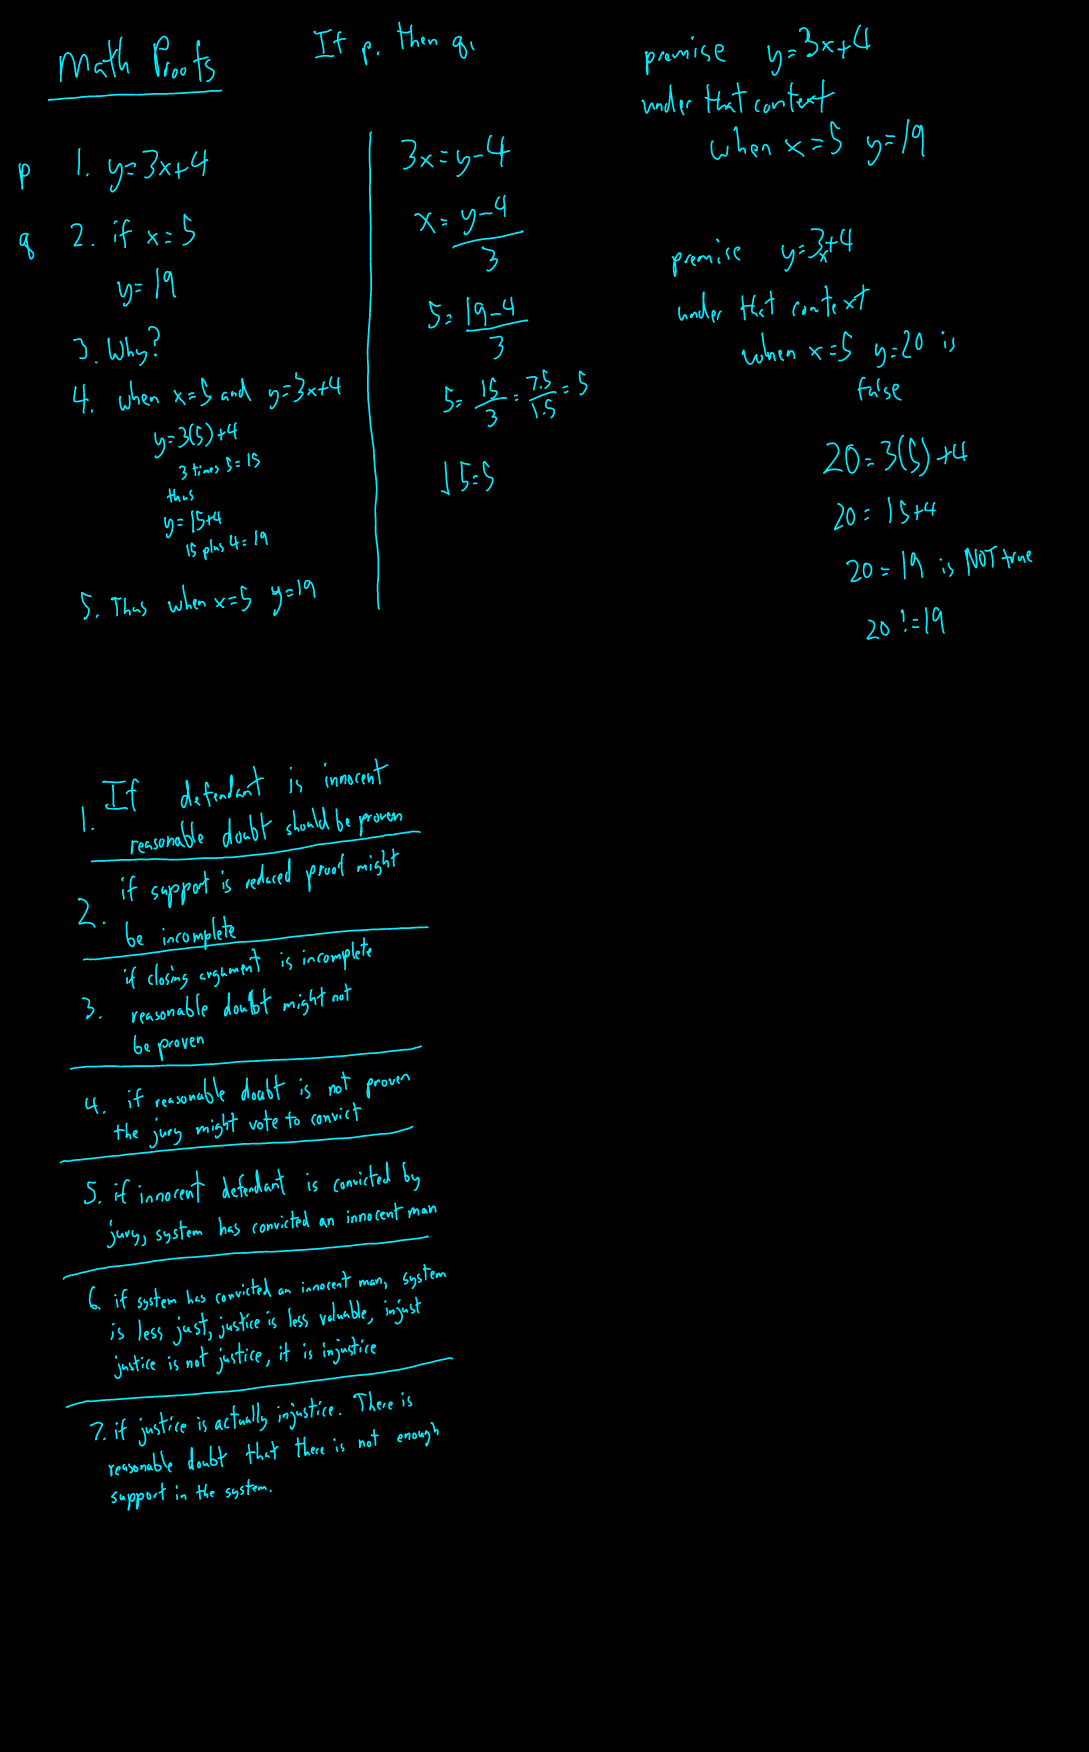 Math Proofs
If p, then q.
p 1. y=3x+4
q 2. if x=5
y=19
3. Why?
4. when x=5 and y=3x+4
y=3(5)+4
3 times 5=15
thus
y=15+4
15 plus 4=19
5. Thus when x=5 y=19
3x=y-4
x=y-4/3
5=19-4/3
5=15/3=7.5/1.5=5
√5=5
premise y=3x+4
under that context
when x=5 y=19
premise y=3x+4
under that context
when x=5 y=20 is
false
20=3(5)+4
20=15+4
20=19 is NOT true
20!=19
1. If defendant is innocent
reasonable doubt should be proven
2. if support is reduced proof might
be incomplete
if closing argument is incomplete
3. reasonable doubt might not
be proven
4. if reasonable doubt is not proven
the jury might vote to convict
5. if innocent defendant is convicted by
jury, system has convicted an innocent man
6. if system has convicted an innocent man, system
is less just, justice is less valuable, injust
justice is not justice, it is injustice
7. if justice is actually injustice. There is
reasonable doubt that there is not enough
support in the system.